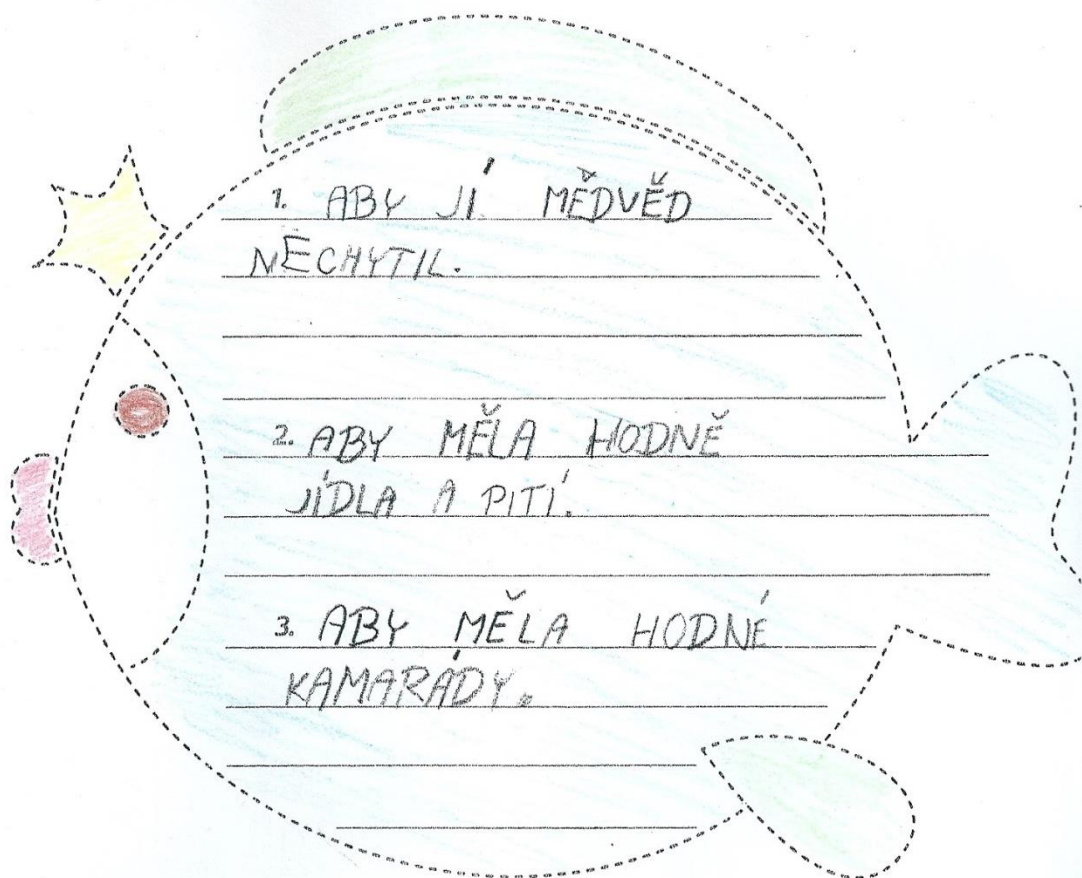 1. ABY JÍ MĚDVĚD
NECHYTIL.
2. ABY MĚLA HODNĚ
JÍDLA A PITÍ.
3. ABY MĚLA HODNÉ
KAMARÁDY.